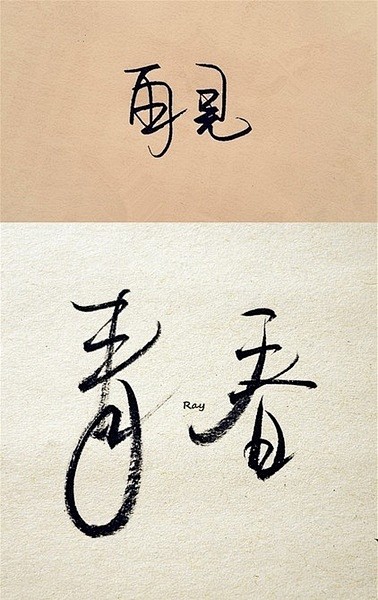 再見
青春
Ray